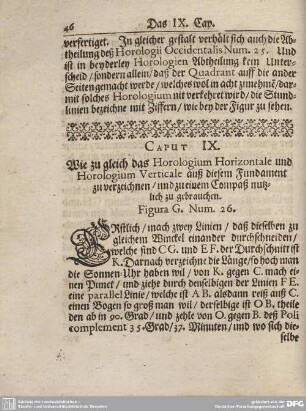 46 Das IX. Cap.
verfertiget. In gleicher gestalt verhält sich auch die Ab-
theilung deß Horologii Occidentalis Num. 25. Und
ist in beyderley Horologien Abtheilung kein Unter-
scheid / sondern allein / daß der Quadrant auff die ander
Seiten gemacht werde / welches wol in acht zunehmē / dar-
mit solches Horologium nit verkehret wird / die Stund-
linien bezeichne mit Ziffern / wie bey der Figur zu sehen.
CAPUT IX.
Wie zu gleich das Horologium Horizontale und
Horologium Verticale auß diesem Fundament
zu verzeichnen / und zu einem Compaß nutz-
lich zu gebrauchen.
Figura G. Num. 26.
ERstlich / mach zwey Linien / daß dieselben zu
gleichem Winckel einander durchschneiden /
welche sind CG. und EF. der Durchschnitt ist
K. Darnach verzeichne die Länge / so hoch man
die Sonnen-Uhr haben wil / von K. gegen C. mach ei-
nen Punct / und ziehe durch denselbigen der Linien F E.
eine parallel Linie / welche ist A B. alsdann reiß auß C.
einen Bogen so groß man wil / derselbige ist O B. theile
den ab in 90. Grad / und zehle von O. gegen B. deß Poli
complement 35 Grad / 37. Minuten / und wo sich die-
selbe